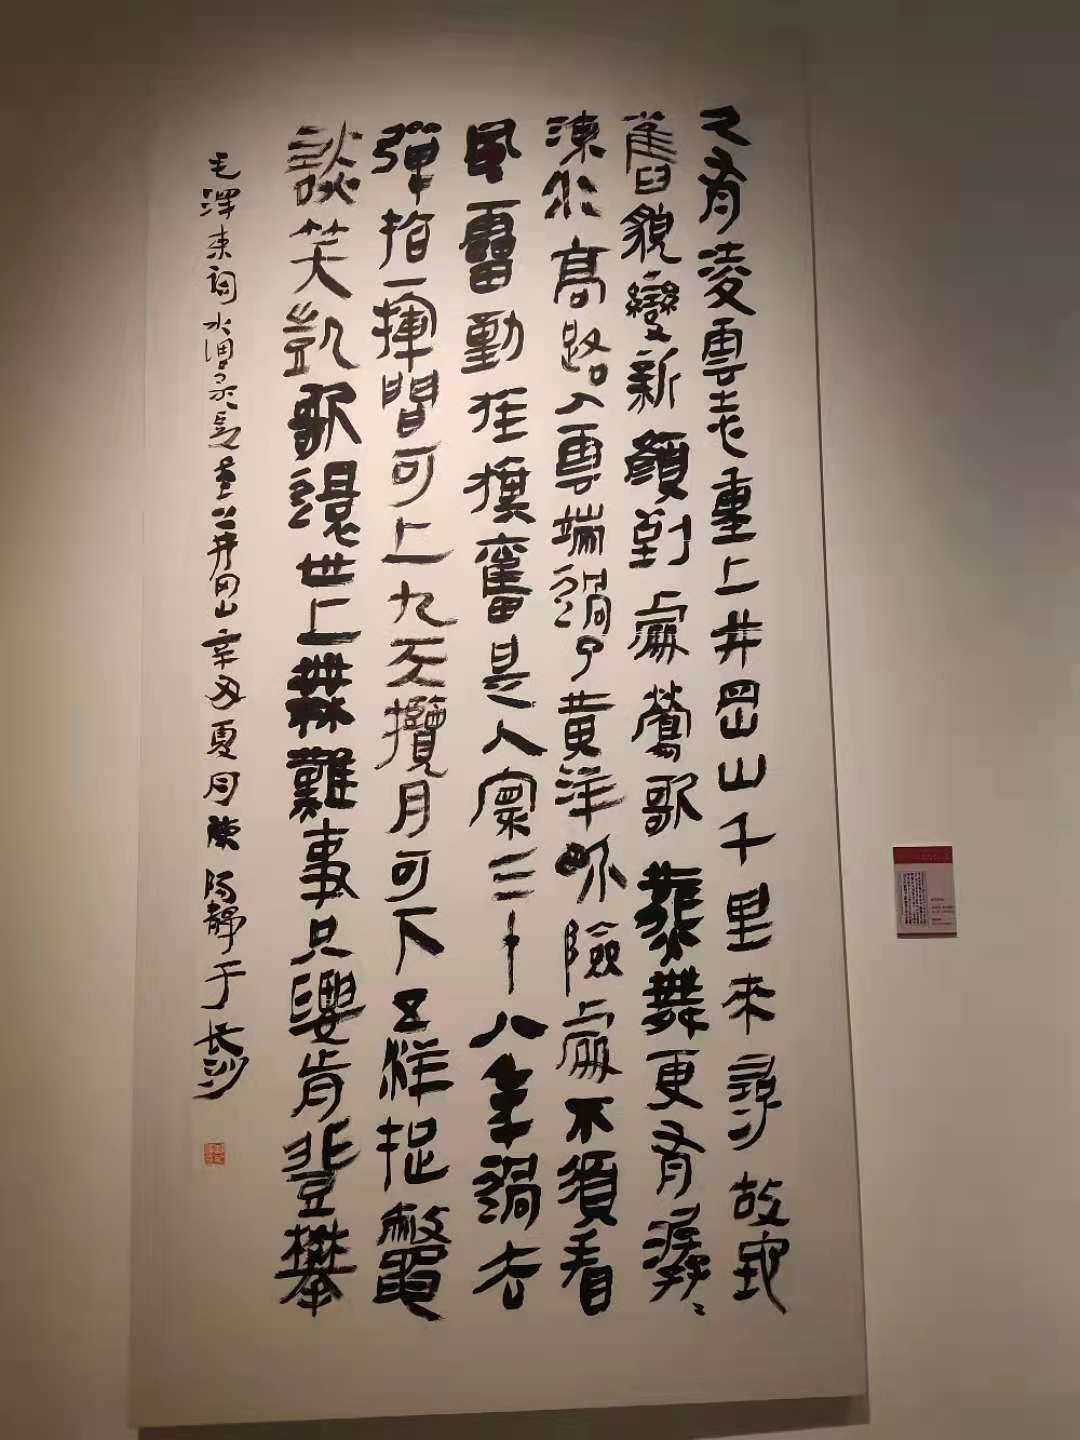 久有凌雲志重上井岡山千里來尋故地
舊貌變新顏到處鶯歌燕舞更有潺〻
流水高路入雲端過了黃洋界險處不須看
風雷動旌旗奮是人寰三十八年過去
彈指一揮間可上九天攬月可下五洋捉鱉
談笑凱歌還世上無難事只要肯登攀
毛澤東詞水調歌头重上井冈山辛丑夏月陳陽靜于长沙